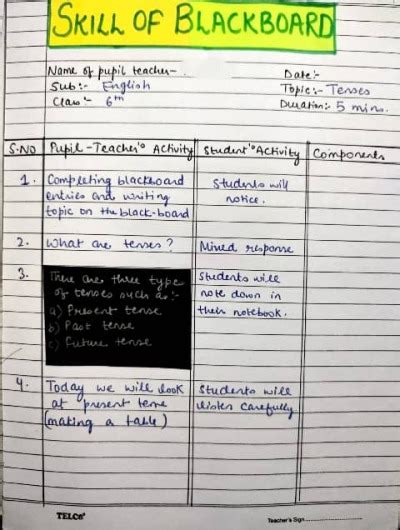 SKILL OF BLACKBOARD
Name of pupil teacher:- Date:-
Sub:- English Topic:- Tenses
Class:- 6th Duration:- 5 mins.
S.NO Pupil-Teacher's Activity Student's Activity Components
1. Completing blackboard Students will
entries and writing notice.
topic on the black-board
2. What are tenses? Mixed response
3. There are three type Students will
of tenses such as:- note down in
a) Present tense their notebook.
b) Past tense
c) Future tense
4. Today we will look Students will
at present tense listen carefully
(making a table)
TELCO Teacher's Sign